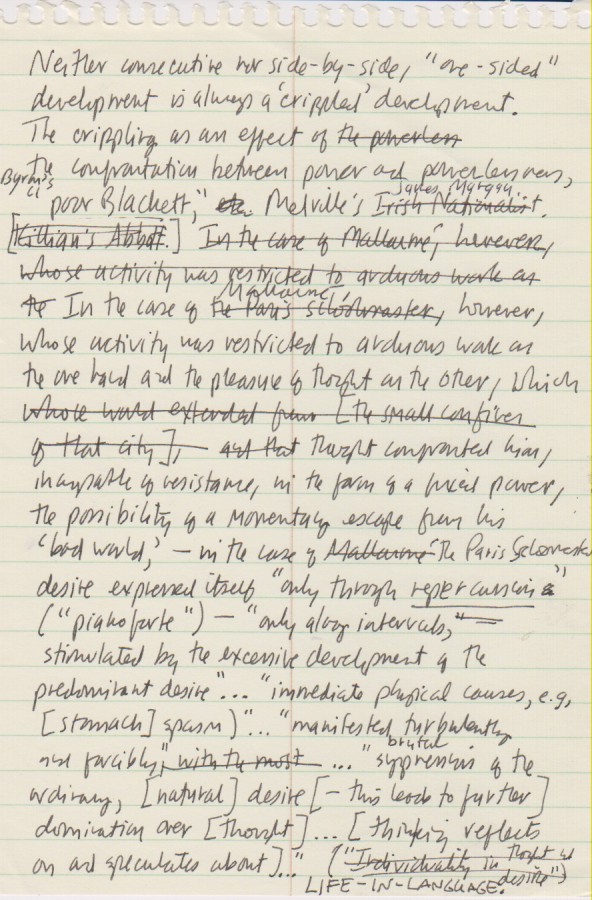 Neither consecutive nor side-by-side, "one-sided"
development is always a 'crippled' development.
The crippling as an effect of the powerless
the confrontation between power and powerlessness,
Byron's "
poor Blackett," etc. Melville's Irish Nationalist.
James Murgay.
[Killian's Abbot.] In the case of Mallarmé, however,
whose activity was restricted to arduous work on
the In the case of the Paris schoolmaster, however,
Mallarmé,
whose activity was restricted to arduous work on
the one hand and the pleasure of thought on the other, which
whose world extended from [the small confines
of that city], and that thought confronted him,
incapable of resistance, in the form of a fixed power,
the possibility of a momentary escape from his
'bad world,' – in the case of Mallarmé the Paris Schoolmaster
desire expressed itself "only through repercussions"
("pianoforte") – "only along intervals,"
stimulated by the excessive development of the
predominant desire"... "immediate physical causes, e.g,
[stomach] spasm)"... "manifested turbulently
and forcibly", with the most ... "suppression of the
brutal
ordinary, [natural] desire [– this leads to further]
domination over [thought]... [thinking reflects
on and speculates about]..." ("Individuality in thought and
desire")
LIFE-IN-LANGUAGE.